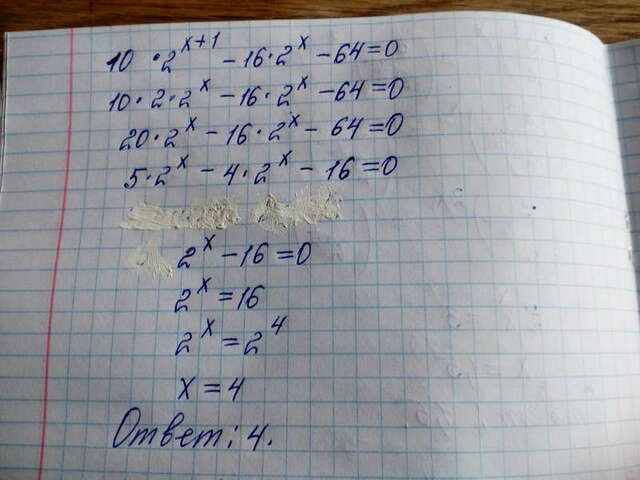 10 · 2^{x+1} - 16 · 2^x - 64 = 0
10 · 2 · 2^x - 16 · 2^x - 64 = 0
20 · 2^x - 16 · 2^x - 64 = 0
5 · 2^x - 4 · 2^x - 16 = 0
2^x - 16 = 0
2^x = 16
2^x = 2^4
x = 4
Ответ: 4.